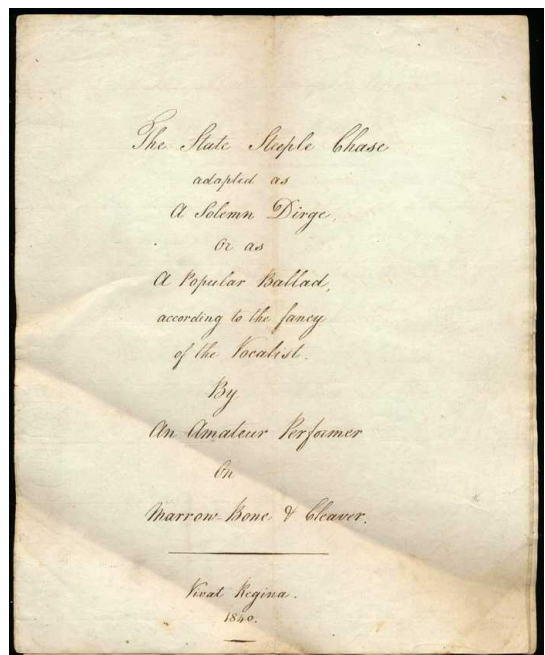 The State Steeple Chase
adapted as
A Solemn Dirge,
Or as
A Popular Ballad,
according to the fancy
of the Vocalist.
By
An Amateur Performer
On
Marrow-Bone & Cleaver.
Vivat Regina.
1840.